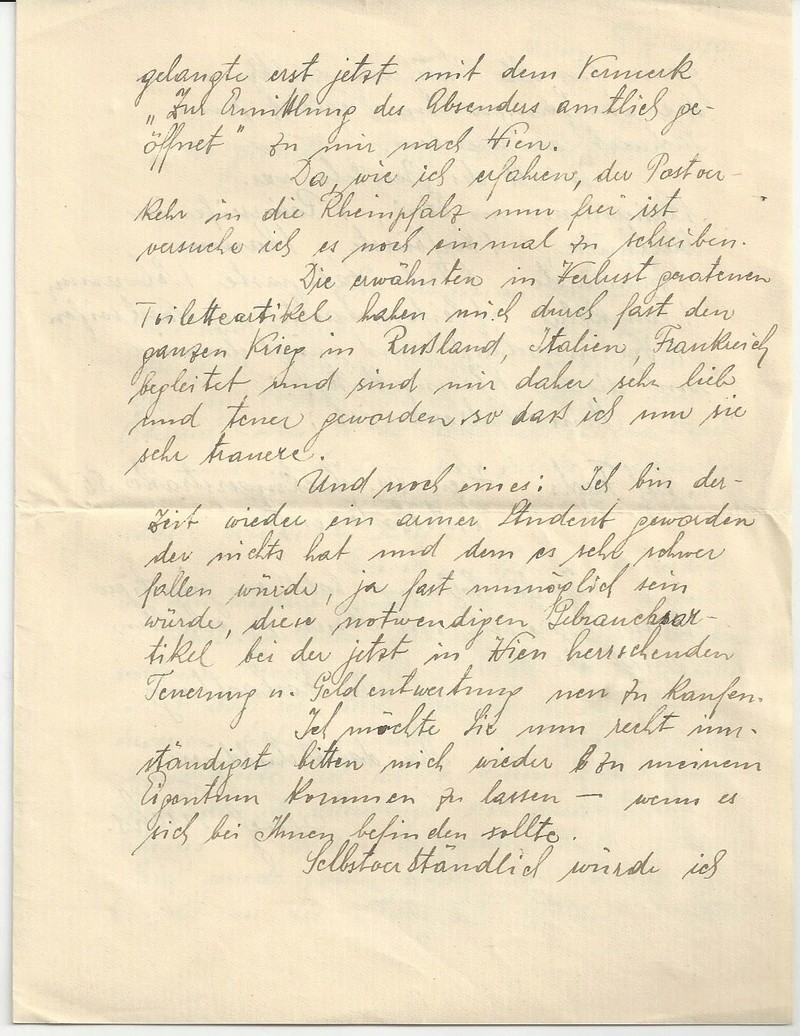 gelangte erst jetzt mit dem Vermerk
„Zur Ermittlung des Absenders amtlich ge-
öffnet" zu mir nach Wien.
Da, wie ich erfahren, der Postver-
kehr in die Rheinpfalz nun frei ist
versuche ich es noch einmal zu schreiben.
Die erwähnten in Verlust geratenen
Toiletteartikel haben mich durch fast den
ganzen Krieg in Rußland, Italien, Frankreich
begleitet und sind mir daher sehr lieb
und teuer geworden so dass ich um sie
sehr trauere.
Und noch eines: Ich bin der-
zeit wieder ein armer Student geworden
der nichts hat und dem es sehr schwer
fallen würde, ja fast unmöglich sein
würde, diese notwendigen Gebrauchsar-
tikel bei der jetzt in Wien herrschenden
Teuerung u. Geldentwertung neu zu kaufen.
Ich möchte Sie nun recht inn-
ständigst bitten mich wieder zu meinem
Eigentum kommen zu lassen — wenn es
sich bei Ihnen befinden sollte.
Selbstverständlich würde ich